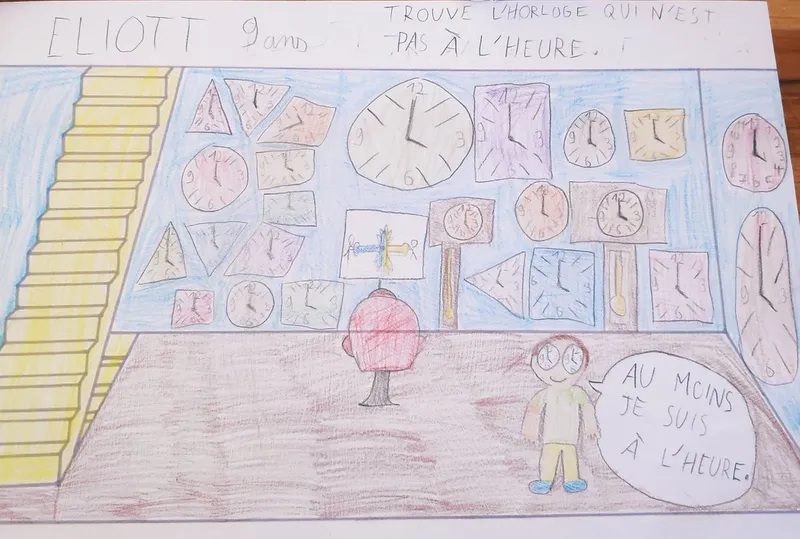 ELIOTT 9 ans
TROUVE L'HORLOGE QUI N'EST
PAS À L'HEURE.
12
3
6
9
AU MOINS
JE SUIS
À L'HEURE.